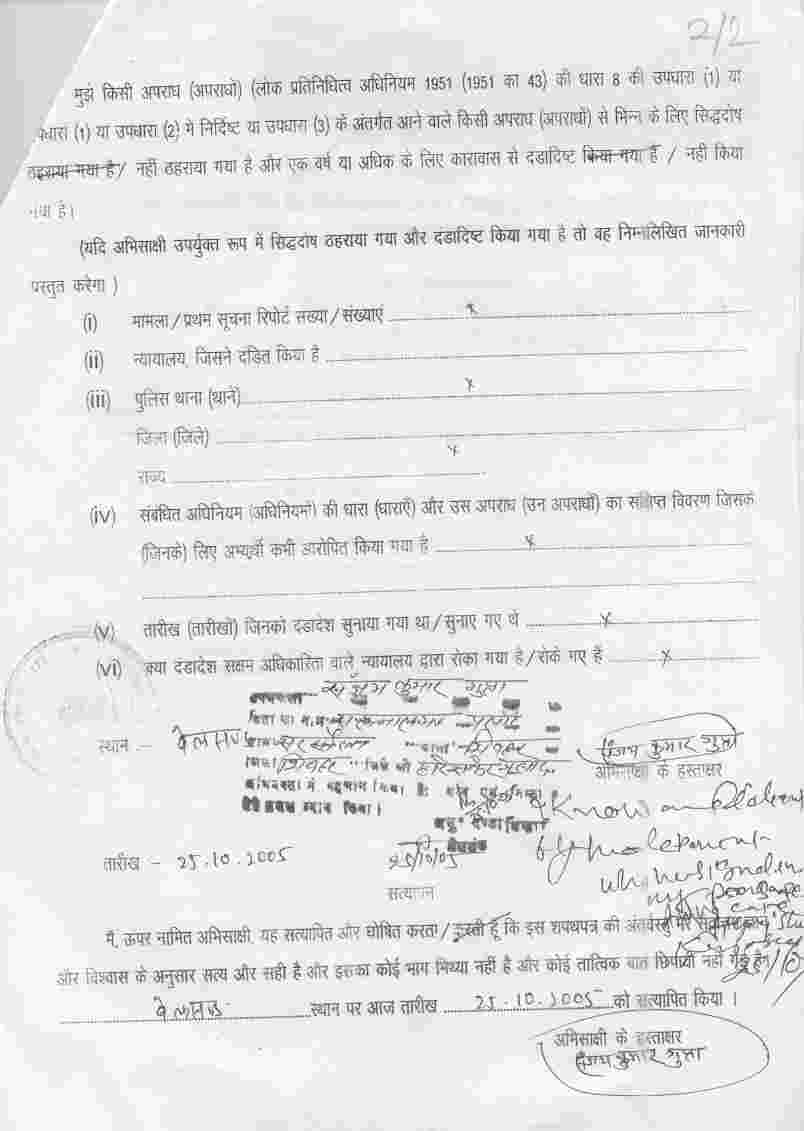 2/2
मुझे किसी अपराध (अपराधों) (लोक प्रतिनिधित्व अधिनियम 1951 (1951 का 43) की धारा 8 की उपधारा (1) या
उपधारा (1) या उपधारा (2) में निर्दिष्ट या उपधारा (3) के अंतर्गत आने वाले किसी अपराध (अपराधों) से भिन्न के लिए सिद्धदोष
ठहराया गया है / नहीं ठहराया गया है और एक वर्ष या अधिक के लिए कारावास से दंडादिष्ट किया गया है / नहीं किया
गया है।
(यदि अभिसाक्षी उपर्युक्त रूप में सिद्धदोष ठहराया गया और दंडादिष्ट किया गया है तो वह निम्नलिखित जानकारी
प्रस्तुत करेगा )
(i) मामला / प्रथम सूचना रिपोर्ट संख्या / संख्याएं x
(ii) न्यायालय, जिसने दंडित किया है
(iii) पुलिस थाना (थाने) x
जिला (जिले)
x
राज्य
(iv) संबंधित अधिनियम (अधिनियमों) की धारा (धाराएँ) और उस अपराध (उन अपराधों) का संक्षिप्त विवरण जिसके
(जिनके) लिए अभ्यर्थी कभी आरोपित किया गया है x
(v) तारीख (तारीखों) जिनको दंडादेश सुनाया गया था / सुनाए गए थे x
(vi) क्या दंडादेश सक्षम अधिकारिता वाले न्यायालय द्वारा रोका गया है / रोके गए हैं x
संजय कुमार गुप्ता
स्थान :- बेलसण्ड
शिवहर
संजय कुमार गुप्ता
अभिसाक्षी के हस्ताक्षर
मेरे समक्ष ब्यान किया।
तारीख - 25.10.2005
25/10/05
सत्यापन
मैं, ऊपर नामित अभिसाक्षी, यह सत्यापित और घोषित करता / करती हूँ कि इस शपथपत्र की अंतर्वस्तु मेरे सर्वोत्तम ज्ञान
और विश्वास के अनुसार सत्य और सही है और इसका कोई भाग मिथ्या नहीं है और कोई तात्विक बात छिपायी नहीं गई है।
बेलसण्ड स्थान पर आज तारीख 25.10.2005 को सत्यापित किया ।
अभिसाक्षी के हस्ताक्षर
संजय कुमार गुप्ता